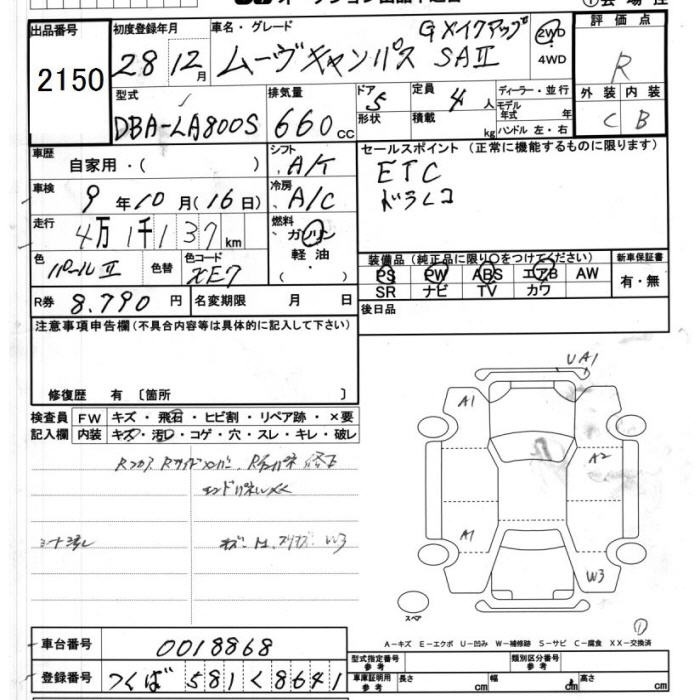 出品番号
2150
初度登録年月
28 12月
車名・グレード
Gメイクアップ
ムーヴキャンバス SAⅡ
2WD
4WD
評価点
R
外装 内装
C B
型式
DBA-LA800S
排気量
660cc
ドア 5
形状
定員 4 人
積載 kg
ディーラー・並行
モデル年式 年
ハンドル 左・右
車歴
自家用・( )
シフト
A/T
セールスポイント (正常に機能するものに限ります)
ETC
ドラレコ
車検
9年10月(16日)
冷房
A/C
走行
4万1千137km
燃料
ガソリン
軽油
・( )
色
パールⅡ
色替
色コード
XE7
装備品(純正品に限り○をつけてください)
PS PW ABS エアB AW
SR ナビ TV カワ
新車保証書
有・無
R券 8.790円
名変期限 月 日
後日品
注意事項申告欄(不具合内容等は具体的に記入して下さい)
修復歴 有 〔箇所 〕
検査員 FW キズ・飛石・ヒビ割・リペア跡・×要
記入欄 内装 キズ・汚レ・コゲ・穴・スレ・キレ・破レ
エンドパネルXX
W3
UA1
A1
A2
A1
W3
スペア
①
A-キズ E-エクボ U-凹み W-補修跡 S-サビ C-腐食 XX-交換済
車台番号 0018868
登録番号 つくば 581 く 8641
型式指定番号 参考
類別区分番号 参考
車庫証明用 参考 長さ cm 幅 cm 高さ cm